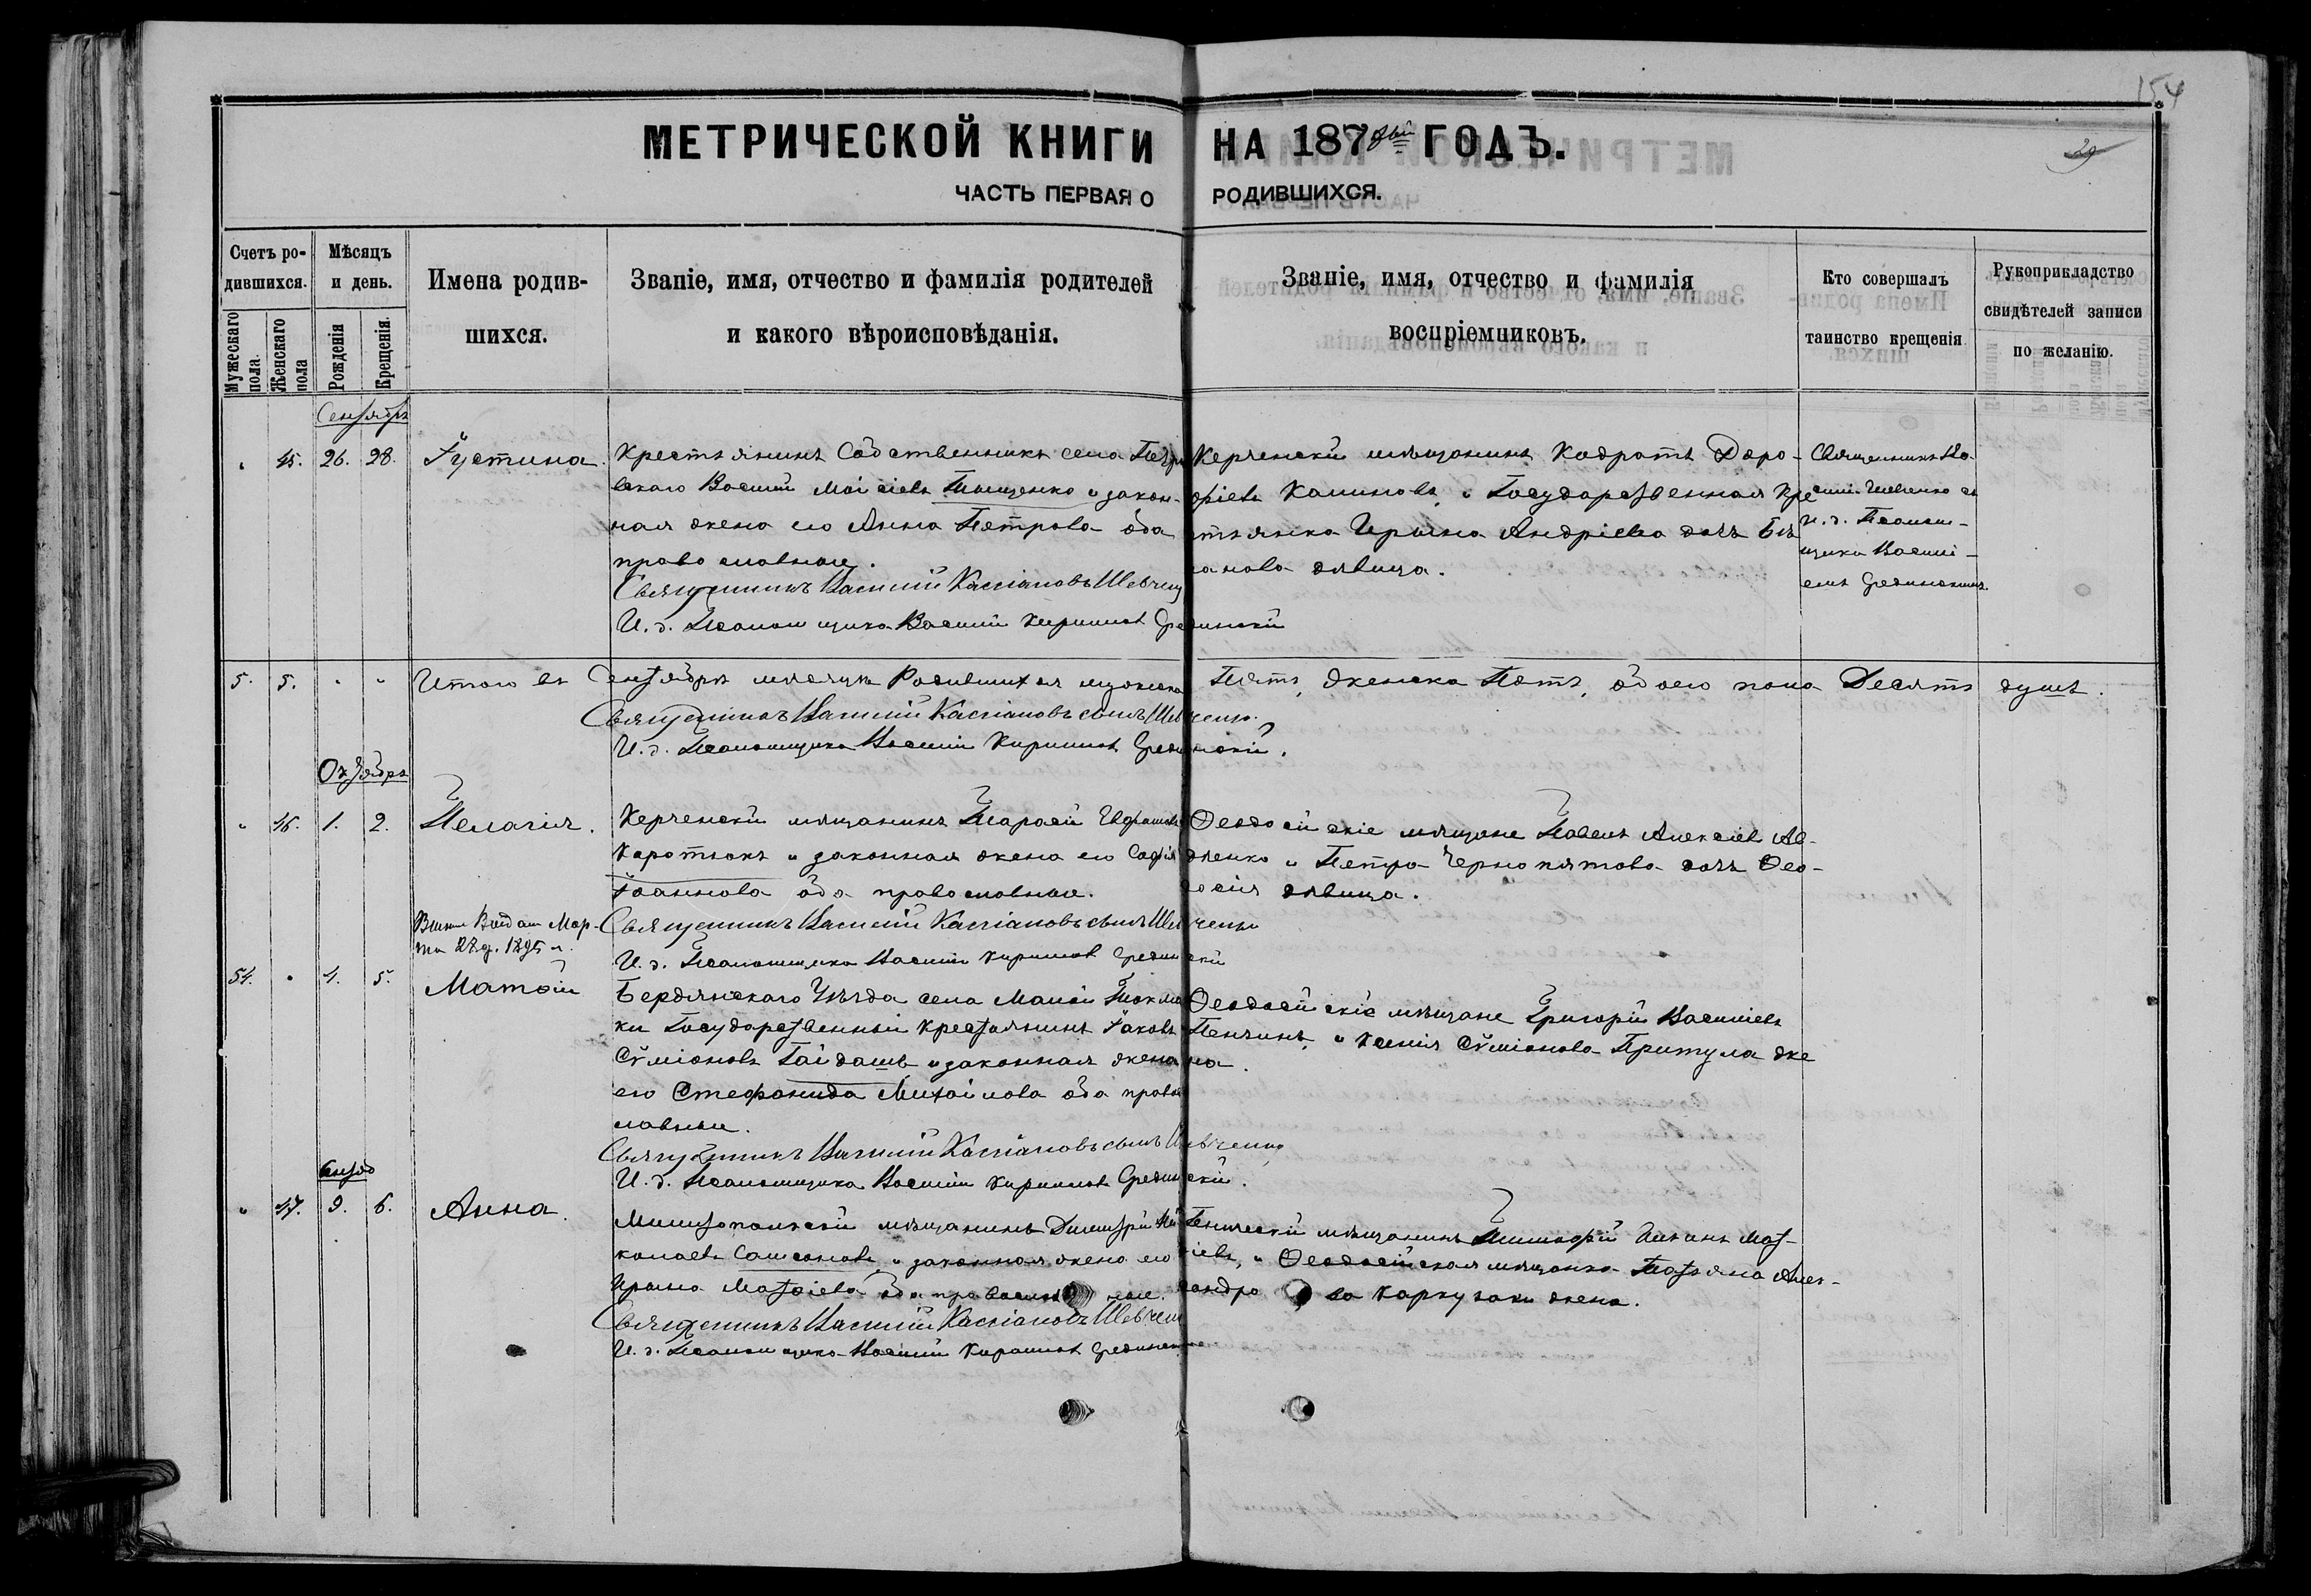 154
МЕТРИЧЕСКОЙ КНИГИ НА 187 ГОДЪ.
29
ЧАСТЬ ПЕРВАЯ О РОДИВШИХСЯ.
Счетъ ро-
дившихся.
Мужескаго
пола.
Женскаго
пола
Мѣсяцъ
и день.
Рожденія
Крещенія.
Имена родив-
шихся.
Званіе, имя, отчество и фамилія родителей
и какого вѣроисповѣданія.
Званіе, имя, отчество и фамилія
воспріемниковъ.
Кто совершалъ
таинство крещенія
Рукоприкладство
свидѣтелей записи
по желанію.
Сентябрь
" 45. 26. 28. Іустина.
Крестьянинъ Собственникъ села Петро
вскаго Василій Моисіевъ Тищенко и закон-
ная жена его Анна Петрова оба
православные.
Священникъ Василій Кассіановъ Шевчен
И. д. Псаломщика Василій Кириловъ Гре
Керченскій мѣщанинъ Кодратъ Доро-
фіевъ Калиновъ, и Государственная Кре
стьянка Ирина Андріева дочь
дѣвица.
Священникъ Ва
силій Шевченко съ
и. д. Псалом-
щика Василі-
емъ
5. 5. " " Итого въ Сентябрѣ мѣсяцѣ Родившихся мужеска Пять, Женска Пять, обоего пола Десять душъ.
Священникъ Василій Кассіановъ сынъ Шевченко.
И. д. Псаломщика Василій Кириловъ
Октябрь
" 46. 1. 2. Пелагія.
Керченскій мѣщанинъ Тарасій
Коротюкъ и законная жена его Софія
Іоаннова оба православные.
Священникъ Василій Кассіановъ сынъ Шевченко
И. д. Псаломщика Василій Кириловъ
Ѳеодосійскіе мѣщане Павелъ Алексіевъ Ав-
дѣенко и Петра Чернопятова дочь Ѳео-
досія дѣвица.
Выпись Выдана Мар-
та 27 д. 1895 г.
51. " 4. 5. Матѳій
Бердянскаго Уѣзда села Малой Токма
ки Государственный крестьянинъ Іаковъ
Сѵміоновъ Гайдашъ и законная жена
его Стефанида Михайлова оба право
лавные.
Священникъ Василій Кассіановъ сынъ Шевченко
И. д. Псаломщика Василій Кириловъ
Ѳеодосійскіе мѣщане Григорій Василіевъ
и Ксенія Сѵміонова Притула же
на.
" 47. 9. 6. Анна.
Мелитопольскій мѣщанинъ Димитрій Ни
колаевъ Самсоновъ и законная жена его
Ирина Матѳіева оба православные.
Священникъ Василій Кассіановъ Шевчен
И. д. Псаломщика Василій Кириловъ
Геническій мѣщанинъ Никифорій Мат-
ѳіевъ, и Ѳеодосійская мѣщанка Татьяна Алек-
сандрова жена.